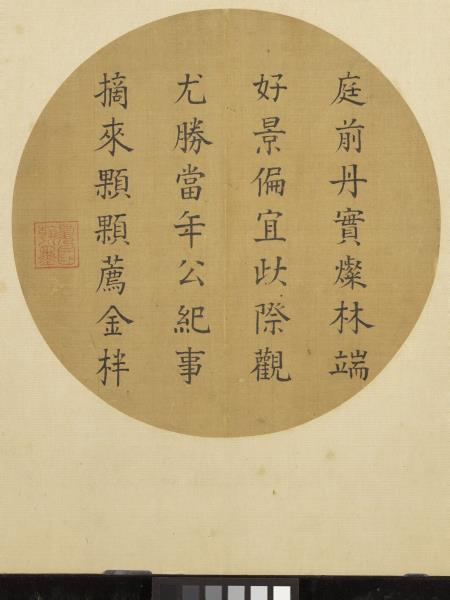 庭前丹實燦林端
好景偏宜此際觀
尤勝當年公紀事
摘來顆顆薦金柈